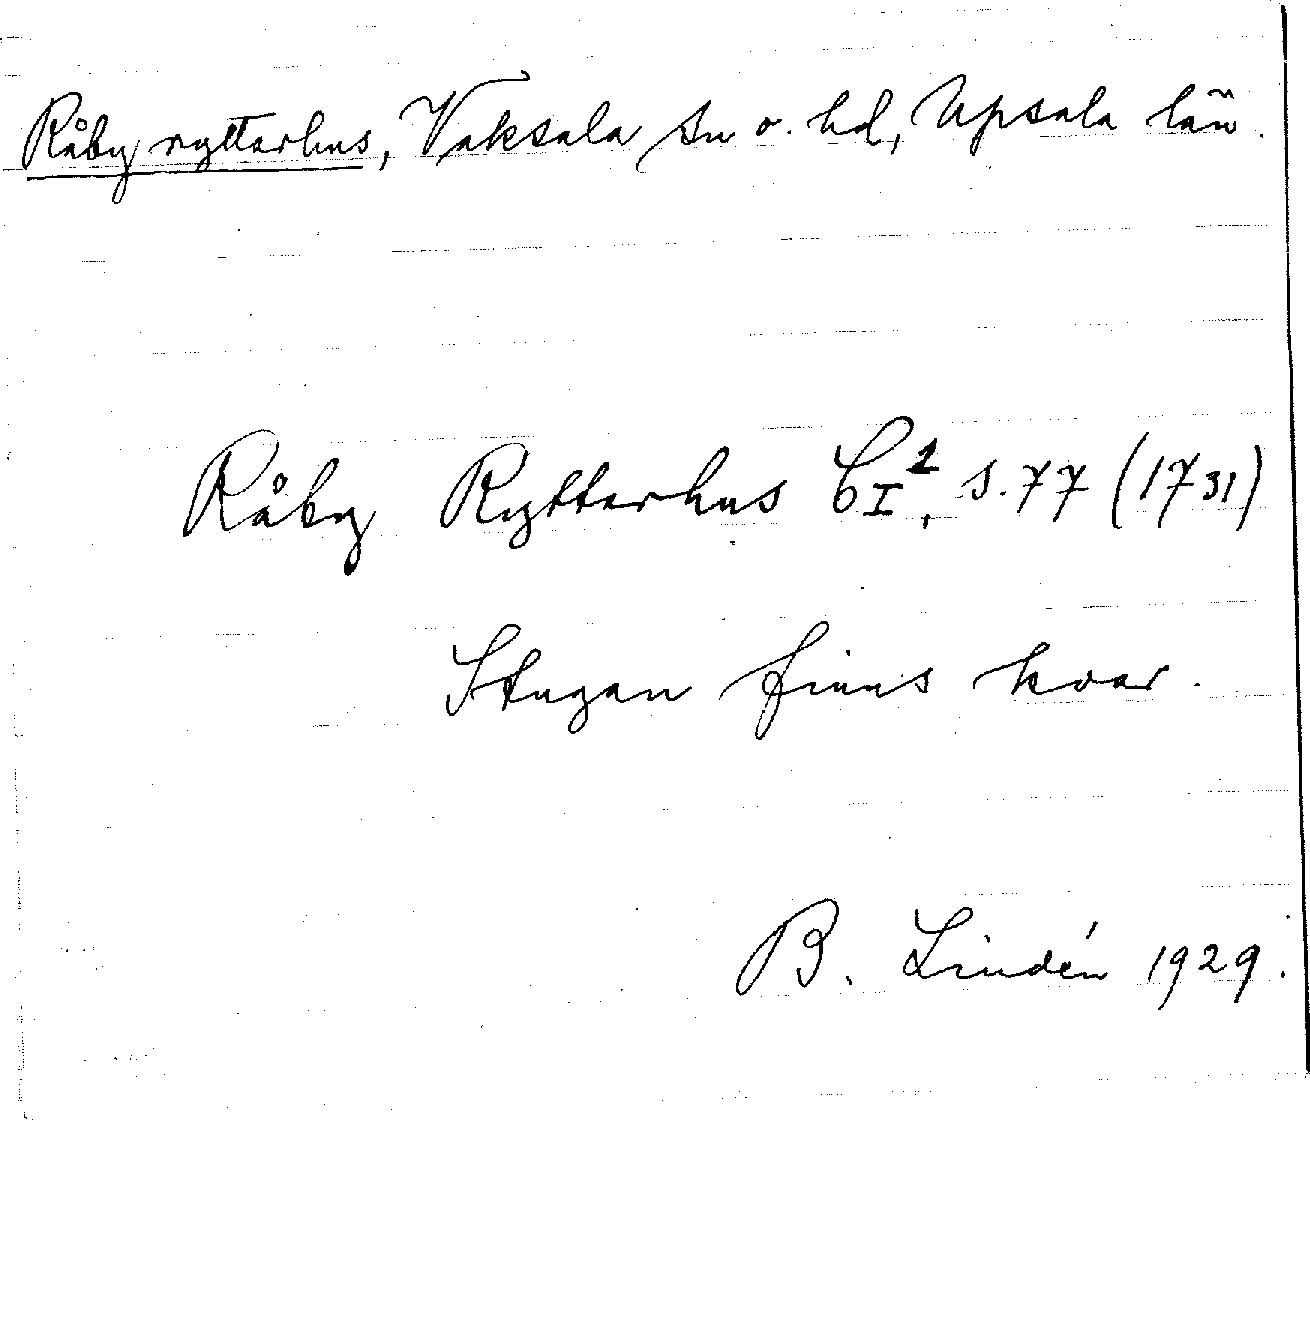 Råby ryttarhus, Vaksala sn o. hd, Upsala län.
Råby Ryttarhus CI², s. 77 (1731)
Stugan finns kvar.
B. Lindén 1929.